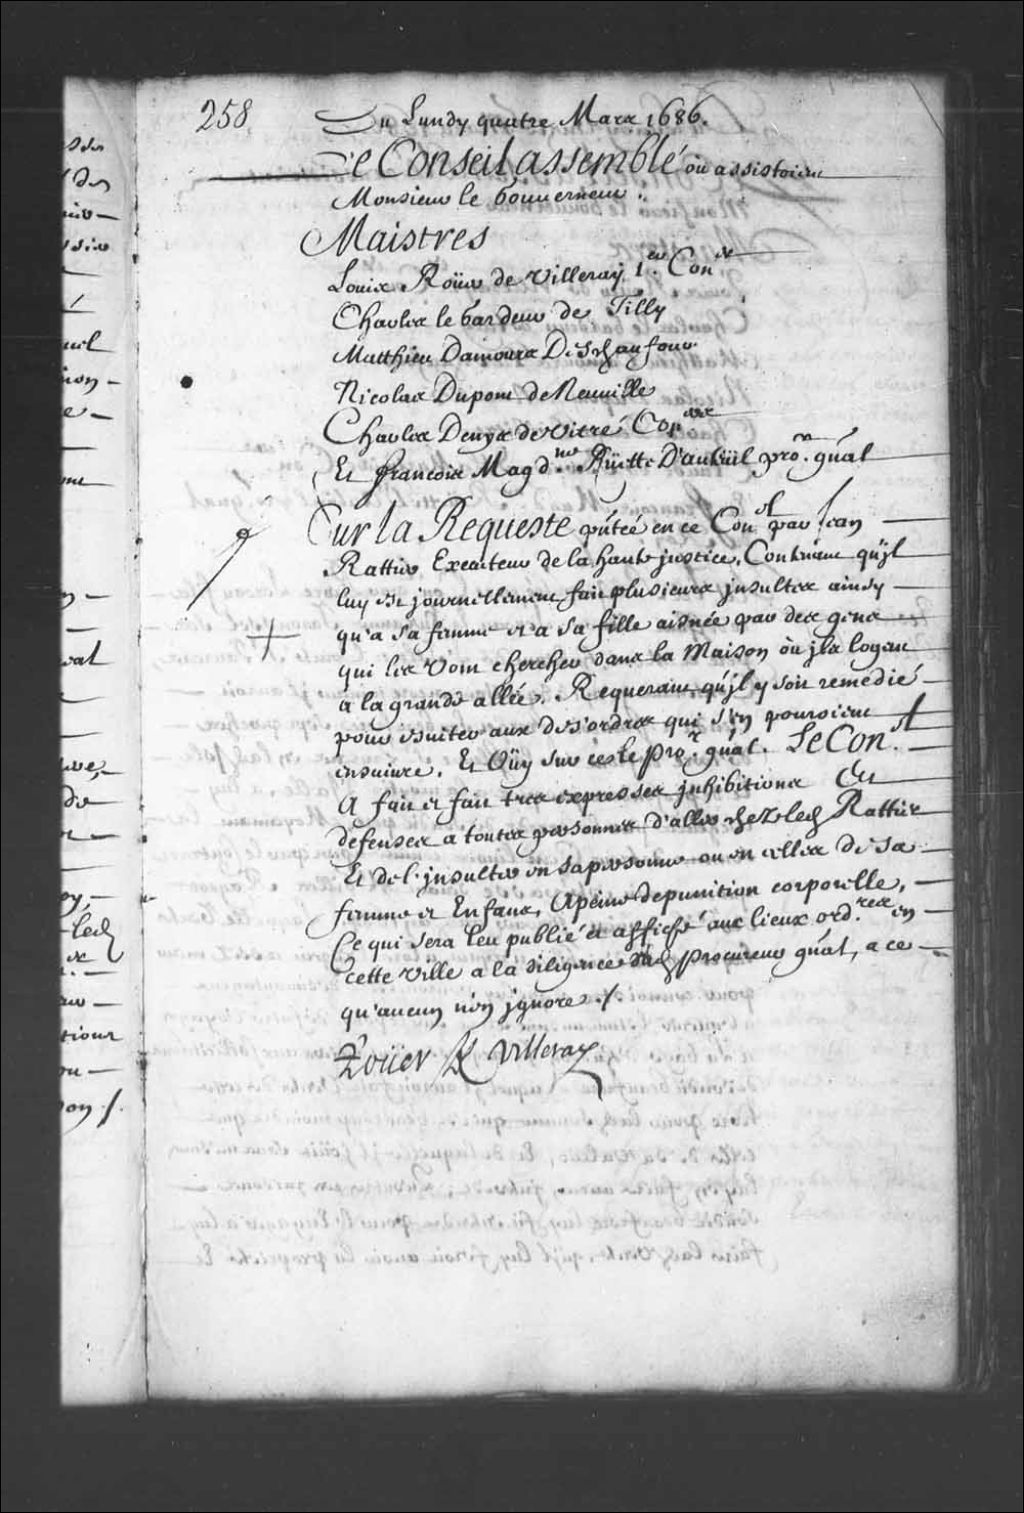 258
Du Lundy quatre Mars 1686.
Le Conseil assemblé où assistoient
Monsieur le Gouverneur.
Maistres
Louis Roüer de Villeray 1er Coner
Charles le Gardeur de Tilly
Matthieu Damours Deschaufour
Nicolas Dupont de Neuuille
Charles Denys de Vitré Coners
Et françois Magdne Rüette D'auteüil pror. gñal
Sur la Requeste pñtée en ce Conel par Jean
Rattier Executeur de la haute justice, Contenant qu'jl
luy est journellement fait plusieurs jnsultes ainsy
qu'a sa femme et a sa fille aisnée par des gens
qui les Vont chercher dans la Maison où jls logent
a la grande allée. Requerant qu'jl y soit remedié
pour esuiter aux des'ordres qui s'en pouroient
ensuivre. Et Oüy sur ce le pror. gñal. Le Conel
A fait et fait tres expresses jnhibitions Et
defenses a toutes personnes d'aller chez led Rattier
Et de l'jnsulter en sa personne ou en celles de sa
femme et Enfans, Apeine de punition corporelle,
Ce qui sera leu publié et affiché aux lieux ord.res en
cette ville a la diligence dud procureur gñal, a ce
qu'aucun n'en jgnore ./.
Roüer de Villeray